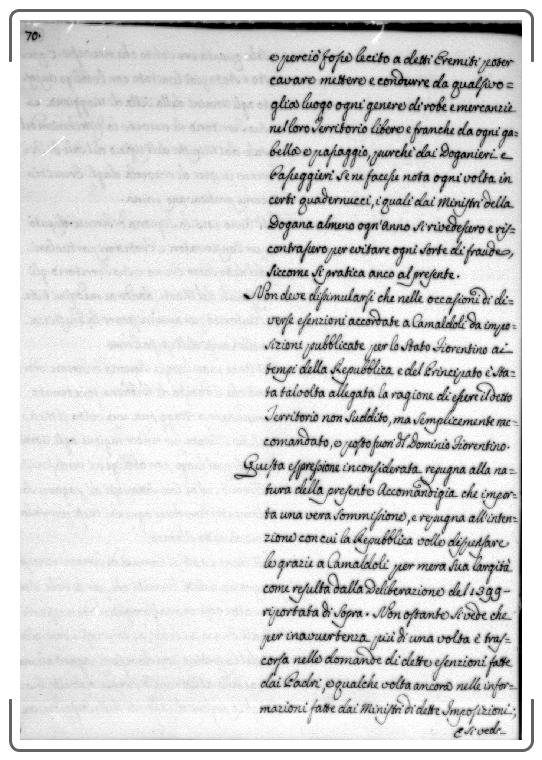 70.
e perciò fosse lecito a detti Eremiti poter
cavare mettere e condurre da qualsivo=
glia luogo ogni genere di robe e mercanzie
nel loro Territorio libere e franche da ogni ga=
bella e passaggio, purchè dai Doganieri e
Passeggieri se ne facesse nota ogni volta in
certi quadernucci, i quali dai Ministri della
Dogana almeno ogn'anno si rivedessero e ris=
contrassero per evitare ogni sorte di fraude,
siccome si pratica anco al presente.
Non deve dissimularsi che nelle occasioni di di=
verse esenzioni accordate a Camaldoli da impo=
sizioni pubblicate per lo Stato Fiorentino ai
tempi della Repubblica e del Principato è sta=
ta talvolta allegata la ragione di essere il detto
Territorio non suddito, ma semplicemente rac=
comandato, e posto fuori di Dominio Fiorentino.
Questa espressione inconsiderata repugna alla na=
tura della presente Accomandigia che impor=
ta una vera sommissione, e repugna all'inten=
zione con cui la Repubblica volle dispensare
le grazie a Camaldoli per mera sua largità
come resulta dalla Deliberazione del 1399-
riportata di sopra. Non ostante si vede che
per inavvertenza più di una volta è tras=
corsa nelle domande di dette esenzioni fatte
dai Padri, e qualche volta ancora nelle infor=
mazioni fatte dai Ministri di dette Imposizioni;
e si vede